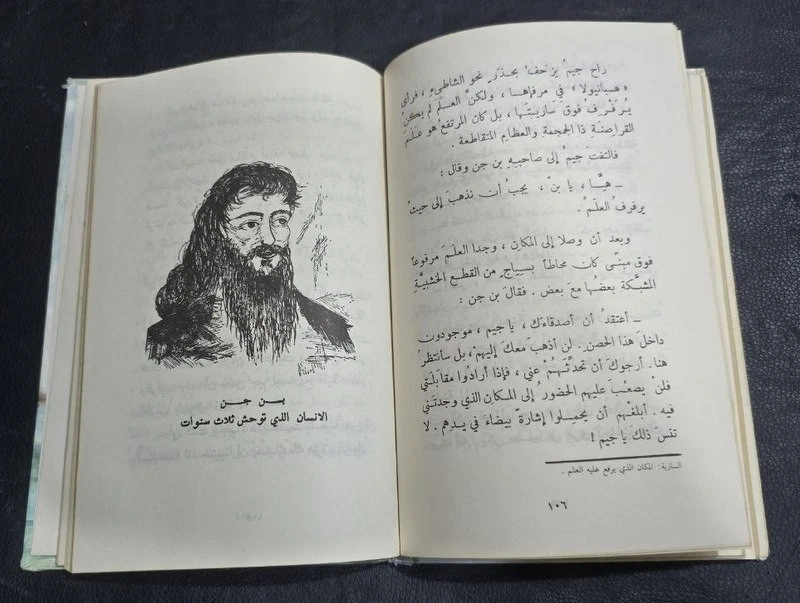 راح جيم يزحف بحذر نحو الشاطىء، فرأى
«هسبانيولا» في مرفإها، ولكن العلم لم يكن
يُرفرفُ فوق ساريتها، بل كان المرتفع هو علم
القراصنة ذا الجمجمة والعظام المتقاطعة.
فالتفت جيمُ إلى صاحبه بن جن وقال:
ـ هيّا، يا بن، يجبُ أن نذهبَ إلى حيثُ
يرفرفُ العلمُ.
وبعد أن وصلا إلى المكان، وجدا العلَم مرفوعاً
فوق مبنًى كان محاطاً بسياجٍ من القطع الخشبيَّةِ
المشبَّكة بعضُها معَ بعض. فقالَ بن جن:
ـ أعتقدُ أن أصدقاءَك، يا جيم، موجودون
داخلَ هذا الحصن. لن أذهبَ معك إليهم، بل سأنتظرُ
هنا. أرجوكَ أن تحدِّثَهُمْ عني، فإذا أرادُوا مقابلَتي
فلن يصعُبَ عليهم الحضورُ إلى المكان الذي وجدتَني
فيه. أبلغهُم أن يحملوا إشارةً بيضاءَ في يدهم. لا
تنسَ ذلكَ يا جيم!
السارية: المكان الذي يرفع عليه العلم.
١٠٦
بـن جـن
الانسان الذي توحش ثلاث سنوات